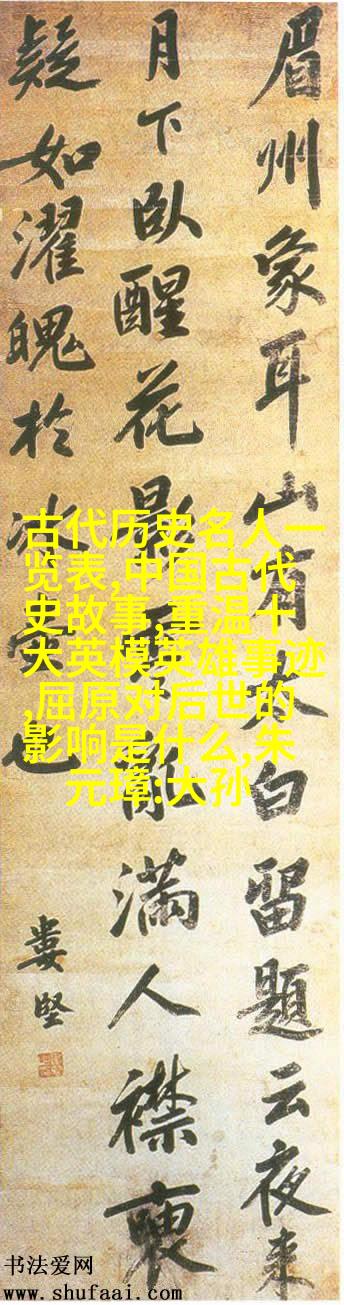 眉州象耳山有白留題云夜来
月下臥醒花影亂滿人襟
疑如濯魄於冰也
婁堅
古代历史名人一
览表,中国古代
史故事,重温十
大英模英雄事迹
,屈原对后世的
影响是什么,朱
元璋:大孙
书法爱网
www.shufaai.com